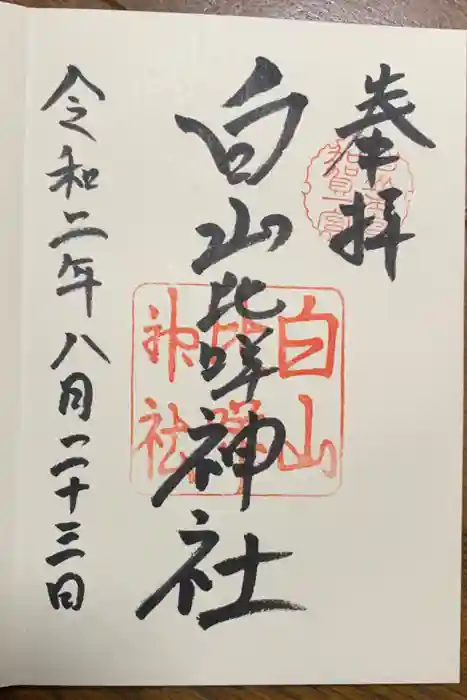 奉拝
白山比咩神社
令和二年八月二十三日
白山
比咩
神社